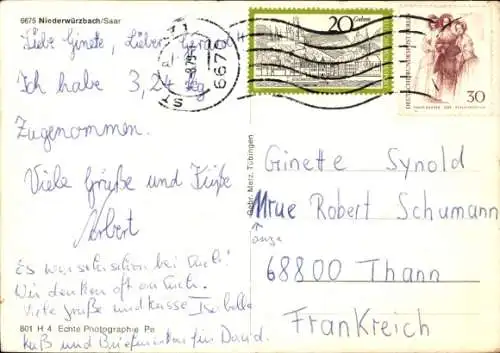 6675 Niederwürzbach/Saar
Liebe Ginete, Lieber Gerald!
Ich habe 3,24 kg
Zugenommen.
Viele Grüße und Küße
Norbert
Es war sehr schön bei Euch!
Wir denken oft an Euch.
Viele grüße und küsse Ire
Kuß und Briefmarken für David.
801 H 4 Echte Photographie
Gebr. Metz, Tübingen
6670
20 Cochem
DEUTSCHE BUNDESPOST
30
Ginette Synold
1 rue Robert Schumann
68800 Thann
Frankreich